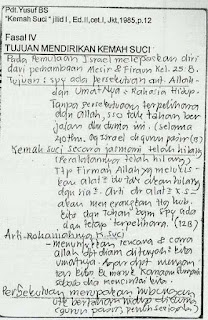 Pdt. Yusuf BS
"Kemah Suci" jilid I, Ed.II,cet.I, Jkt,1985,p.12
Fasal IV
TUJUAN MENDIRIKAN KEMAH SUCI
Pada Permulaan Israel melepaskan diri
dari penambaan Mesir & Firaun Kel. 25:8.
Tujuan: spy ada persekutuan ant. Allah
dan UmatNya = Rahasia Hidup.
Tanpa persekutuan terpelihara
dan Allah, tak tahan ber
jalan di dunia ini. (selama
40 thn, Israel di gurun pasir)
Kemah Suci secara jasmani telah hilang
(Peralatannya telah hilang)
Ttp Firman Allah yg
kan alat2 itu tak akan hilang
dan sia2. Arti dr alat2
akan menerangkan ttg hub.
kita dgn Tuhan agm spy ada
dan tetap terpelihara. (128)
Arti Rohaniahnya K. Suci
- menunjukkan rencana & cara
Allah utk diam di tengah2
umatNya. Agar dpt
kita & masuk
Persekutuan merupakan hubungan
utk bertahan hidup di
(gurun pasir,